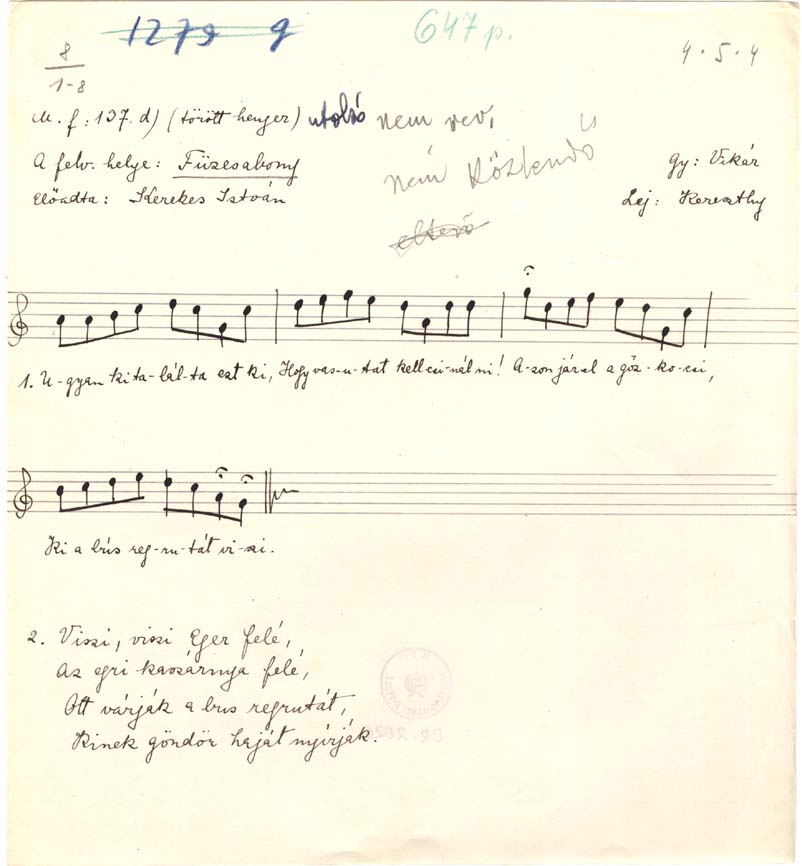 1279 g
647 p.
4 . 5 . 4
8
1-8
M. f: 137. d) (törött henger) utolsó nem rev.
nem közlendő
A felv. helye: Füzesabony
Gy: Vikár
Előadta: Kerekes István
Lej: Kereszthy
eltérő
1. U-gyan ki ta-lál-ta ezt ki, Hogy vas-u-tat kell csi-nál-ni! A-zon jár el a gőz-ko-csi,
Ki a bús reg-ru-tát vi-szi.
2. Viszi, viszi Eger felé,
Az egri kaszárnya felé,
Ott várják a bus regrutát,
Kinek göndör haját nyírják.